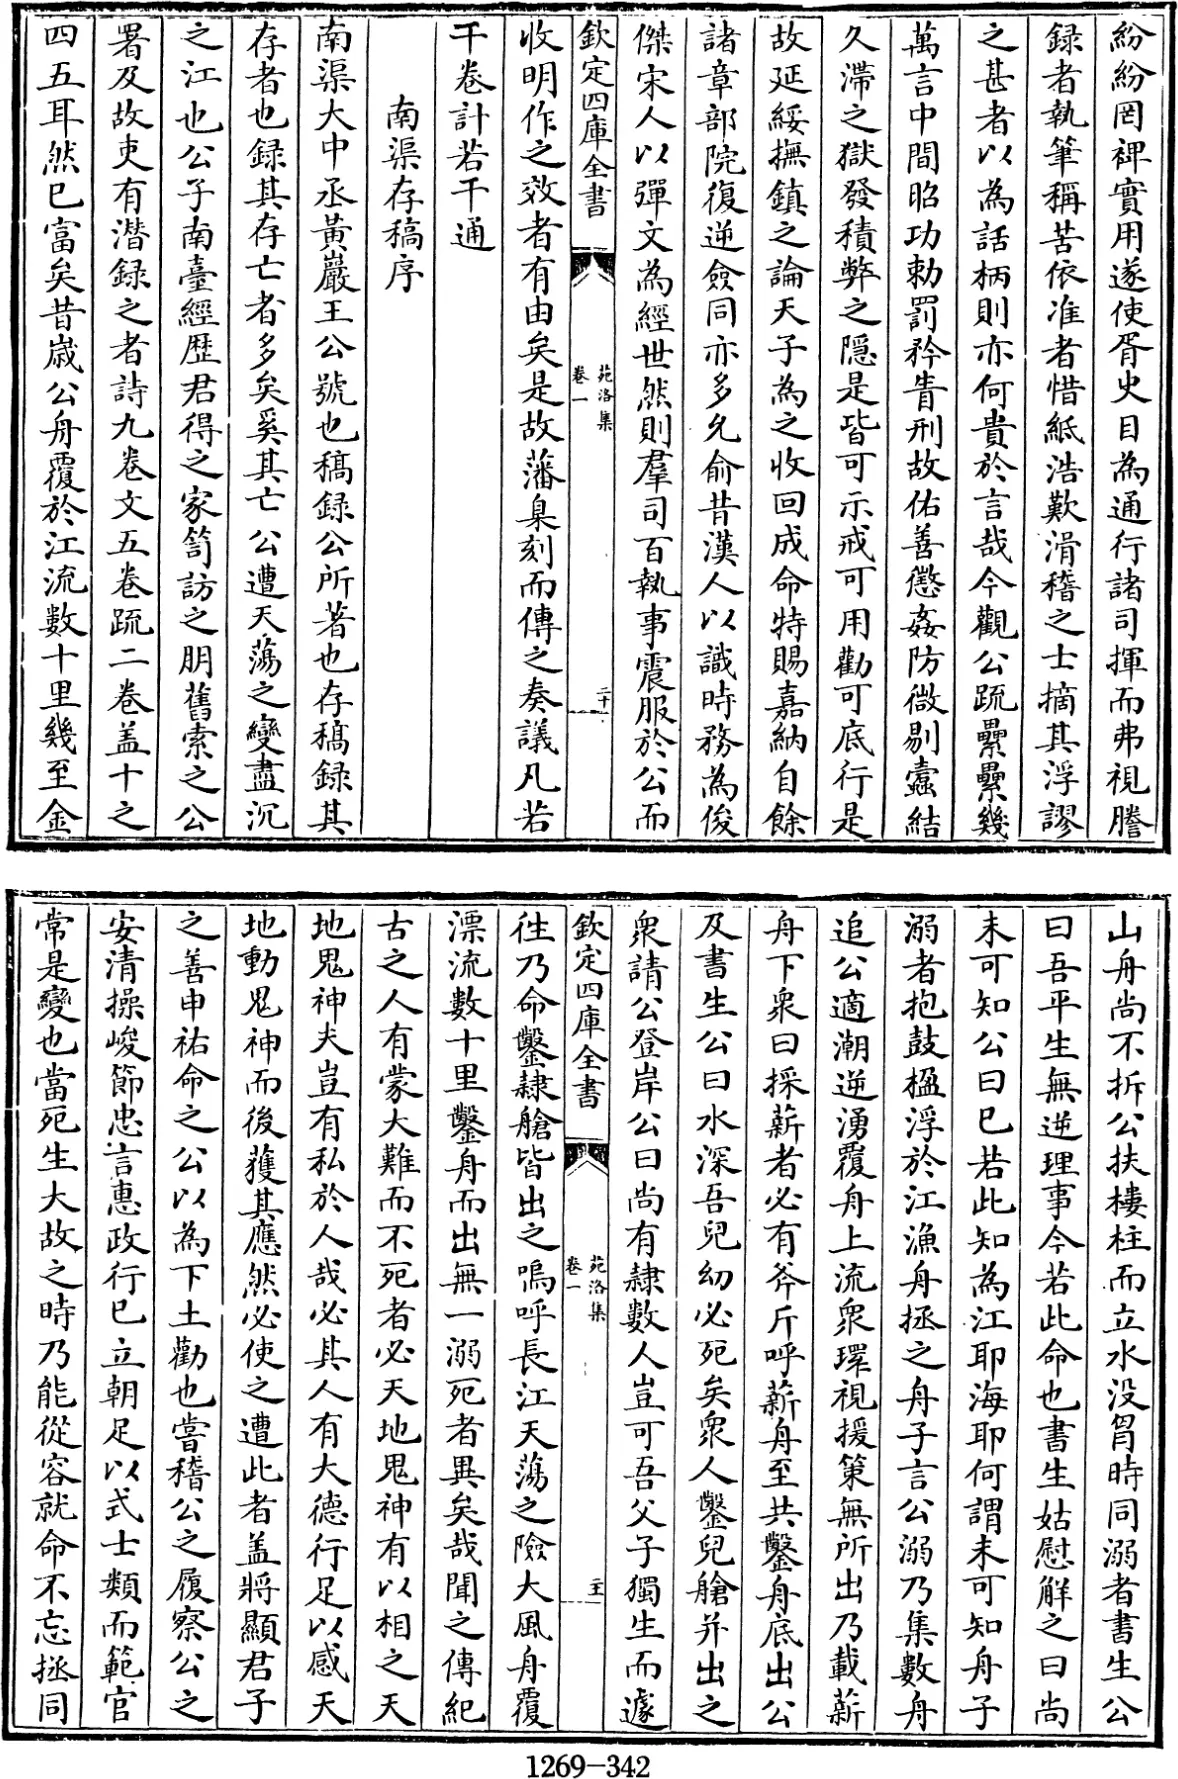 紛紛罔裨實用遂使胥史目為通行諸司揮而弗視謄
録者執筆稱苦依准者惜紙浩歎滑稽之士摘其浮謬
之甚者以為話柄則亦何貴於言哉今觀公疏纍纍幾
萬言中間昭功勅罰矜眚刑故佑善懲姦防微剔蠹結
久滯之獄發積弊之隱是皆可示戒可用勸可底行是
故延綏撫鎮之論天子為之收回成命特賜嘉納自餘
諸章部院復逆僉同亦多允俞昔漢人以識時務為俊
傑宋人以彈文為經世然則羣司百執事震服於公而
欽定四庫全書
苑洛集
卷一
二十
收明作之效者有由矣是故藩臬刻而傳之奏議凡若
干卷計若干通
南渠存稿序
南渠大中丞黃巖王公號也稿録公所著也存稿録其
存者也録其存亡者多矣奚其亡公遭天蕩之變盡沉
之江也公子南臺經歷君得之家笥訪之朋舊索之公
署及故吏有潛録之者詩九卷文五卷疏二卷盖十之
四五耳然已富矣昔歳公舟覆於江流數十里幾至金
山舟尚不拆公扶樓柱而立水没胷時同溺者書生公
曰吾平生無逆理事今若此命也書生姑慰解之曰尚
未可知公曰已若此知為江耶海耶何謂未可知舟子
溺者抱鼓楹浮於江漁舟拯之舟子言公溺乃集數舟
追公適潮逆湧覆舟上流衆環視援策無所出乃載薪
舟下衆曰採薪者必有斧斤呼薪舟至共鑿舟底出公
及書生公曰水深吾兒幼必死矣衆人鑿兒艙并出之
衆請公登岸公曰尚有隷數人豈可吾父子獨生而遽
欽定四庫全書
苑洛集
卷一
二十一
徃乃命鑿隷艙皆出之嗚呼長江天蕩之險大風舟覆
漂流數十里鑿舟而出無一溺死者異矣哉聞之傳紀
古之人有蒙大難而不死者必天地鬼神有以相之天
地鬼神夫豈有私於人哉必其人有大德行足以感天
地動鬼神而後獲其應然必使之遭此者盖將顯君子
之善申祐命之公以為下土勸也嘗稽公之履察公之
安清操峻節忠言惠政行已立朝足以式士類而範官
常是變也當死生大故之時乃能從容就命不忘拯同
1269-342